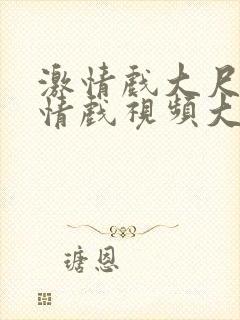 激情戲大尺
情戲視頻大
瑭恩